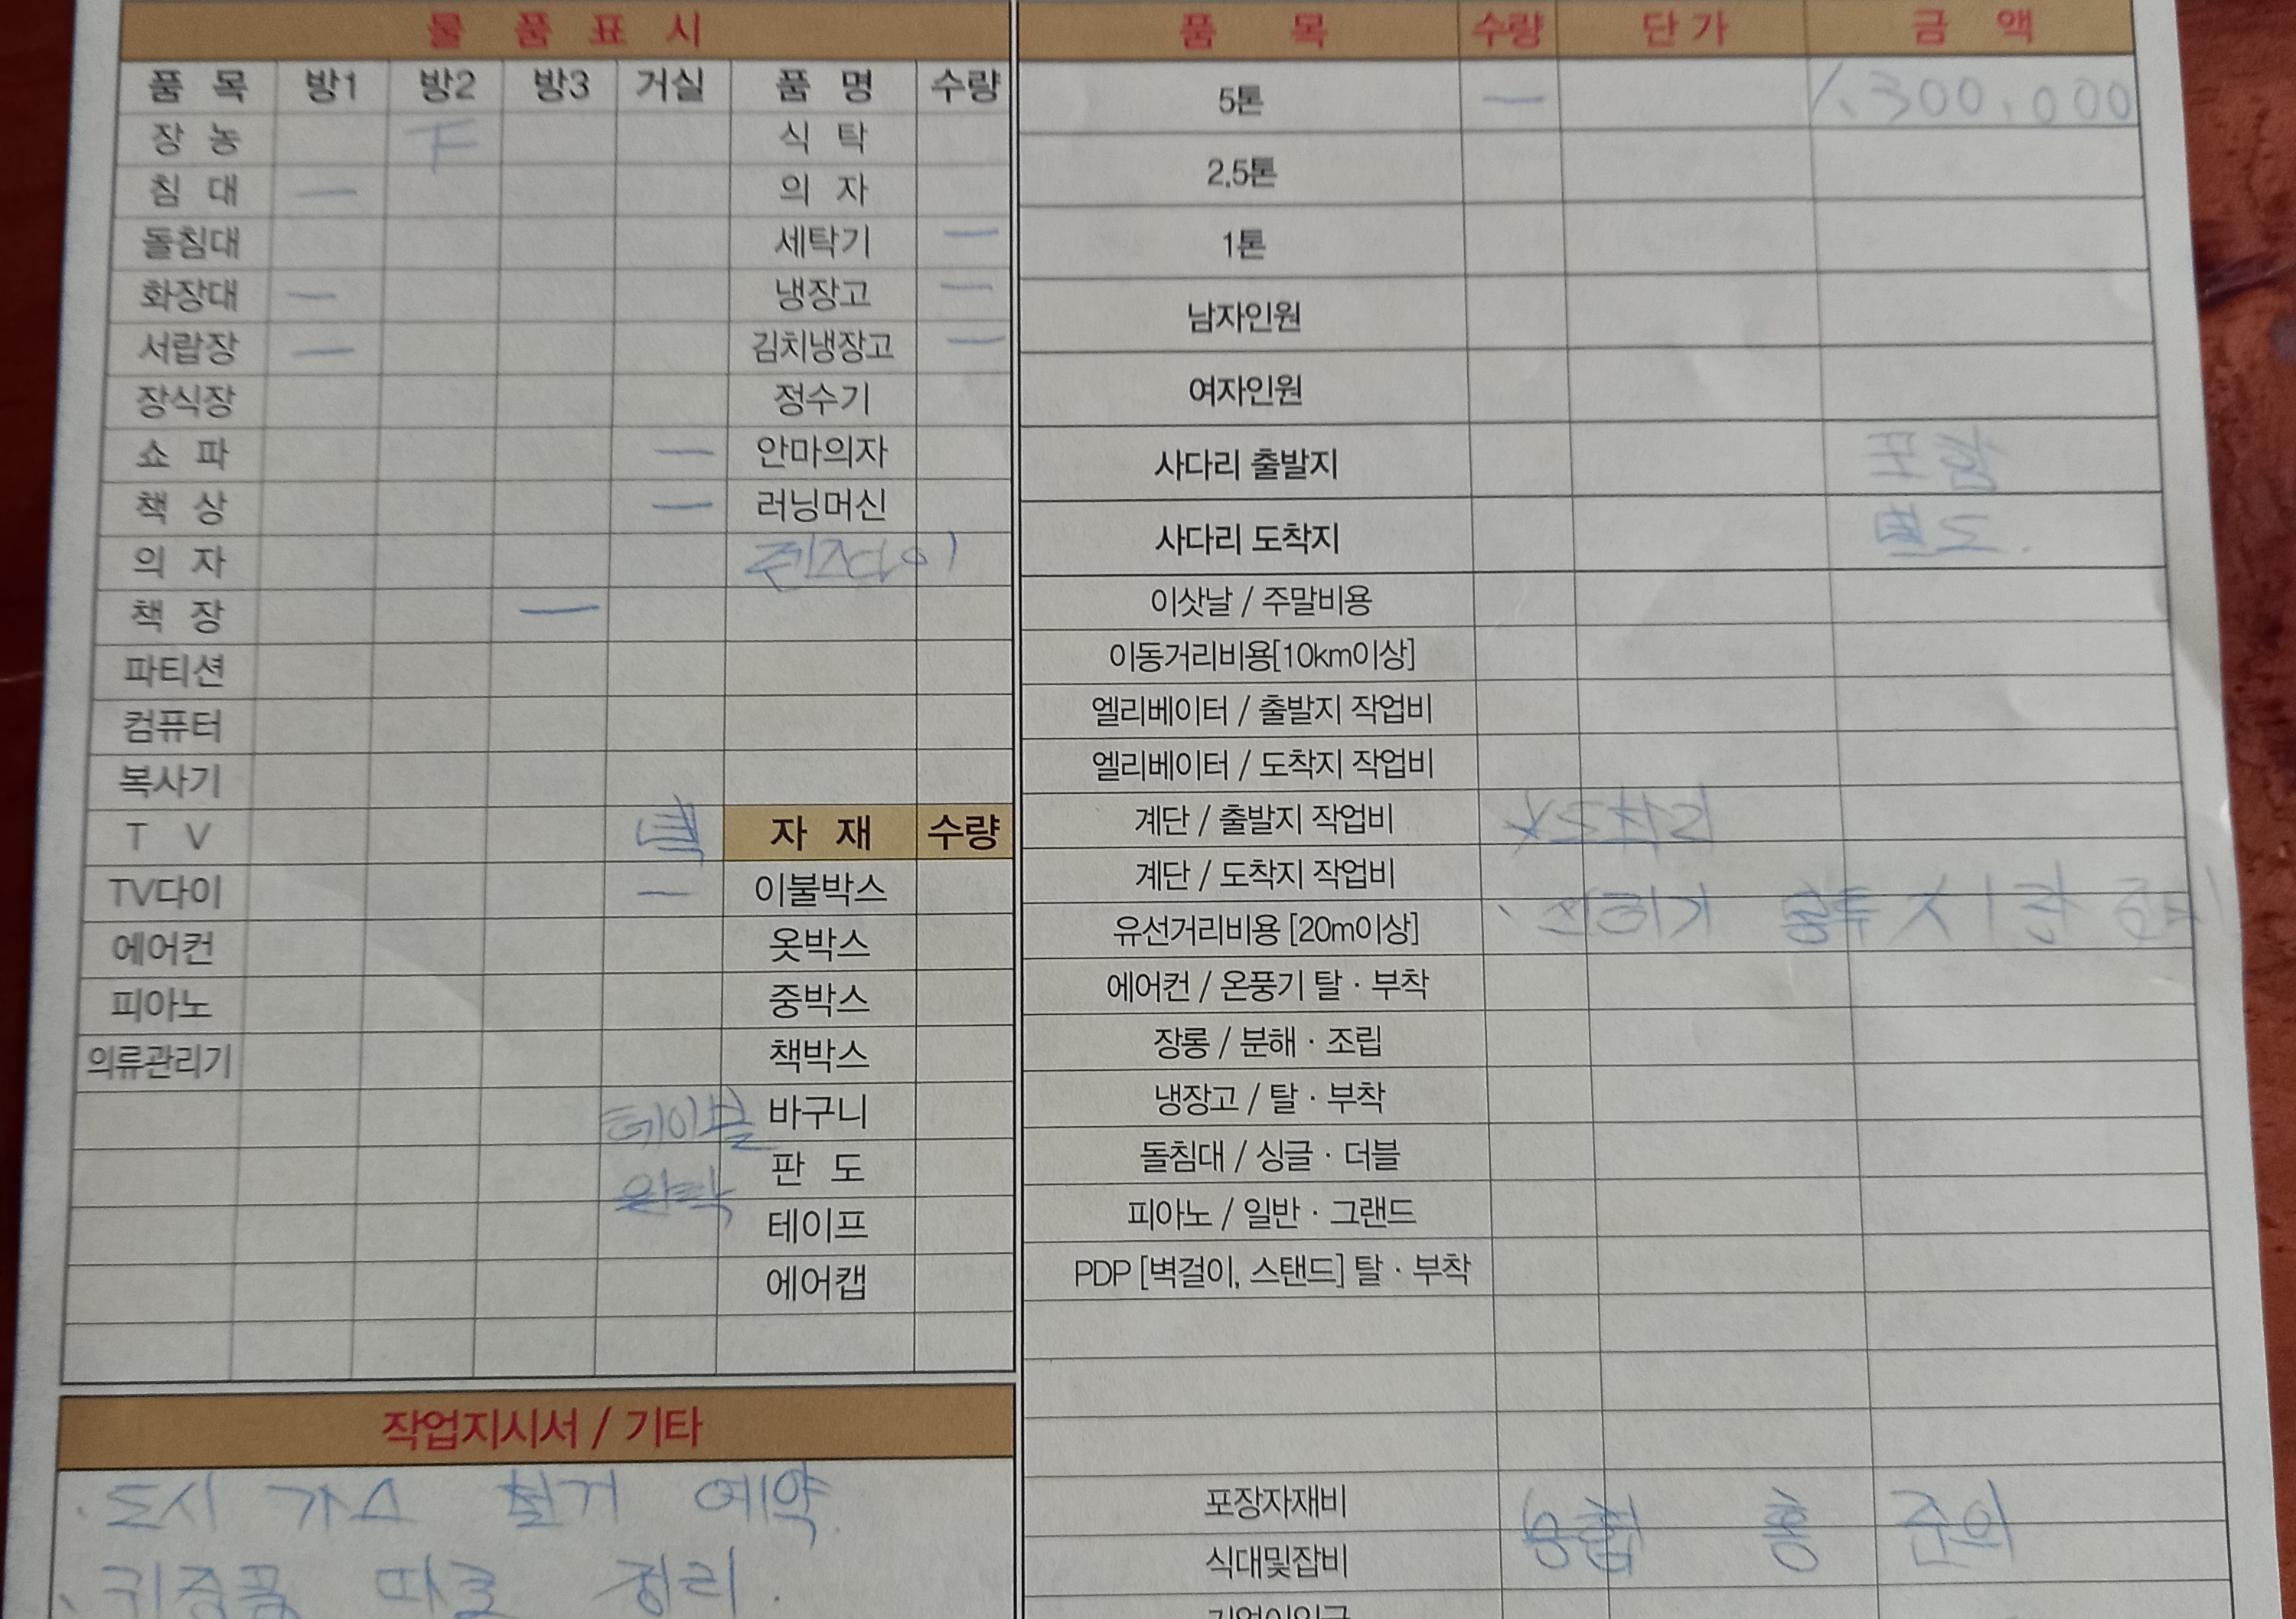 물 품 표 시
품 목 방1 방2 방3 거실 품 명 수량
장 농 식 탁
침 대 一 의 자
돌침대 세탁기 一
화장대 一 냉장고 一
서랍장 一 김치냉장고 一
장식장 정수기
쇼 파 一 안마의자
책 상 一 러닝머신
의 자
책 장 一
파티션
컴퓨터
복사기
T V 벽 자 재 수량
TV다이 一 이불박스
에어컨 옷박스
피아노 중박스
의류관리기 책박스
테이블 바구니
판 도
테이프
에어캡
작업지시서 / 기타
· 도시 가스 철거 예약.
· 귀중품 따로 정리.
품 목 수량 단 가 금 액
5톤 一 1,300,000
2.5톤
1톤
남자인원
여자인원
사다리 출발지 포함
사다리 도착지 별도.
이삿날 / 주말비용
이동거리비용[10km이상]
엘리베이터 / 출발지 작업비
엘리베이터 / 도착지 작업비
계단 / 출발지 작업비
계단 / 도착지 작업비
유선거리비용 [20m이상]
에어컨 / 온풍기 탈 · 부착
장롱 / 분해 · 조립
냉장고 / 탈 · 부착
돌침대 / 싱글 · 더블
피아노 / 일반 · 그랜드
PDP [벽걸이, 스탠드] 탈 · 부착
포장자재비
식대및잡비